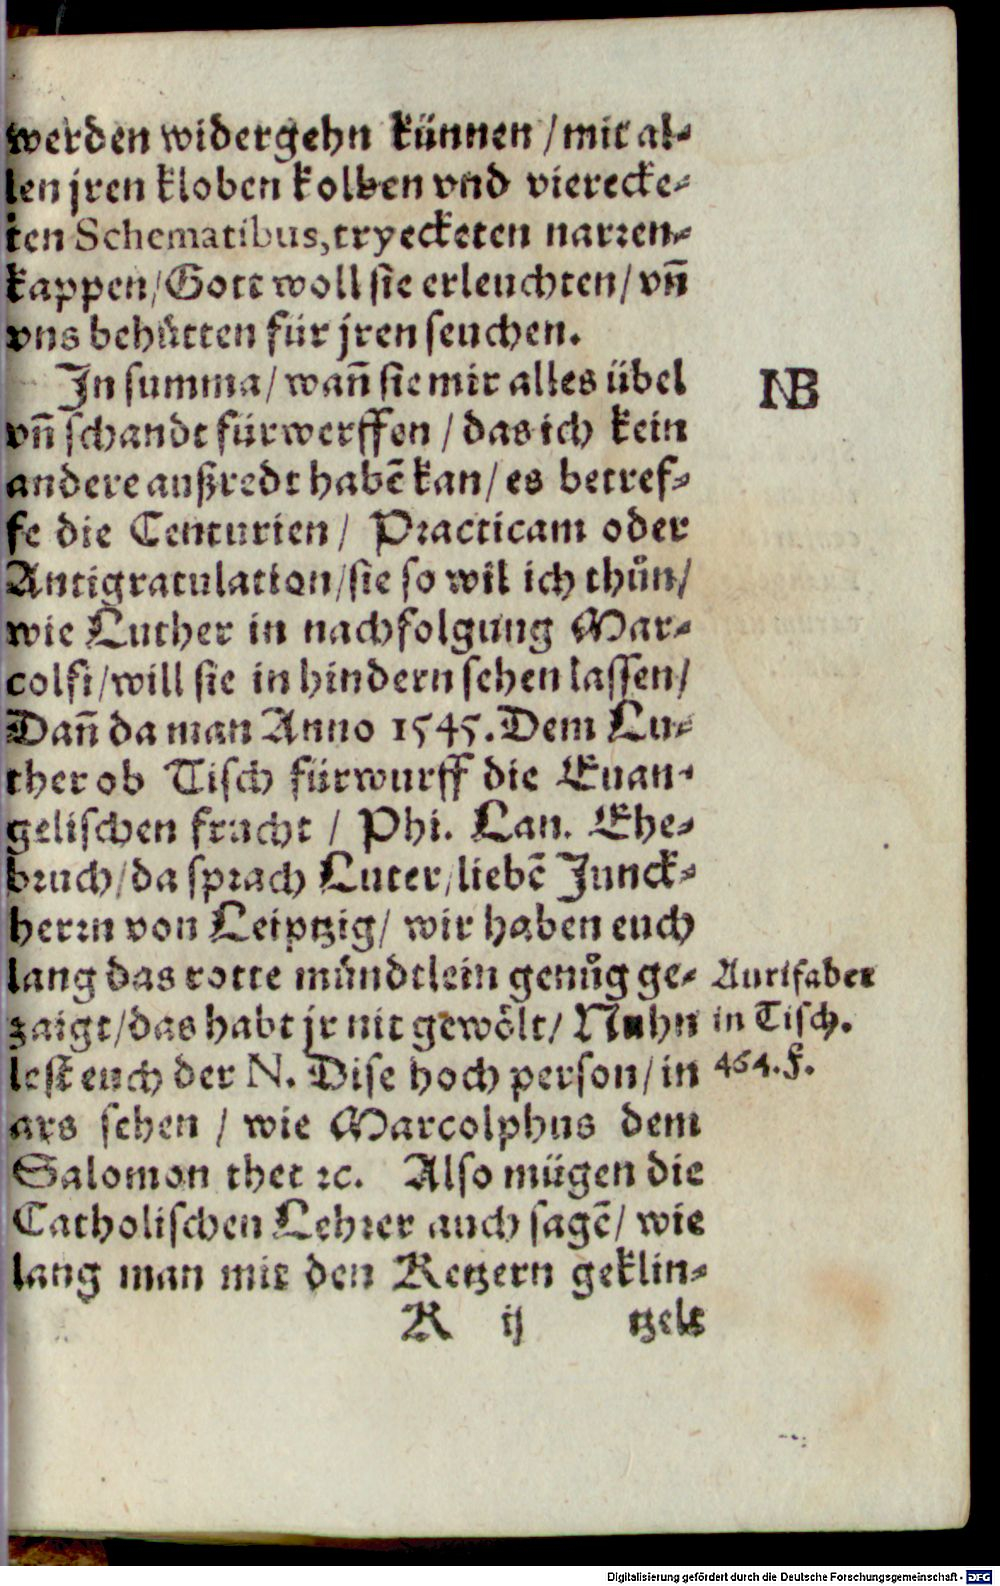 werden widergehn künnen / mit al-
len jren kloben kolben vnd vierecke-
ten Schematibus, tryecketen narren-
kappen / Gott woll sie erleuchten / vñ
vns behütten für jren seuchen.
In summa / wañ sie mir alles übel
vñ schandt fürwerffen / das ich kein
andere außredt habẽ kan / es betref-
fe die Centurien / Practicam oder
Antigratulation / sie so wil ich thůn /
wie Luther in nachfolgung Mar-
colfi / will sie in hindern sehen lassen /
Dañ da man Anno 1545. Dem Lu-
ther ob Tisch fürwurff die Euan-
gelischen frucht / Phi. Lan. Ehe-
bruch / da sprach Luter / liebẽ Junck-
herrn von Leiptzig / wir haben euch
lang das rotte mündtlein genůg ge-
zaigt / das habt jr nit gewölt / Nuhn
lest euch der N. Dise hoch person / in
ars sehen / wie Marcolphus dem
Salomon thet ꝛc. Also mügen die
Catholischen Lehrer auch sagẽ / wie
lang man mit den Ketzern geklin-
K ij tzelt
NB
Aurifaber
in Tisch.
464. f.
Digitalisierung gefördert durch die Deutsche Forschungsgemeinschaft - DFG